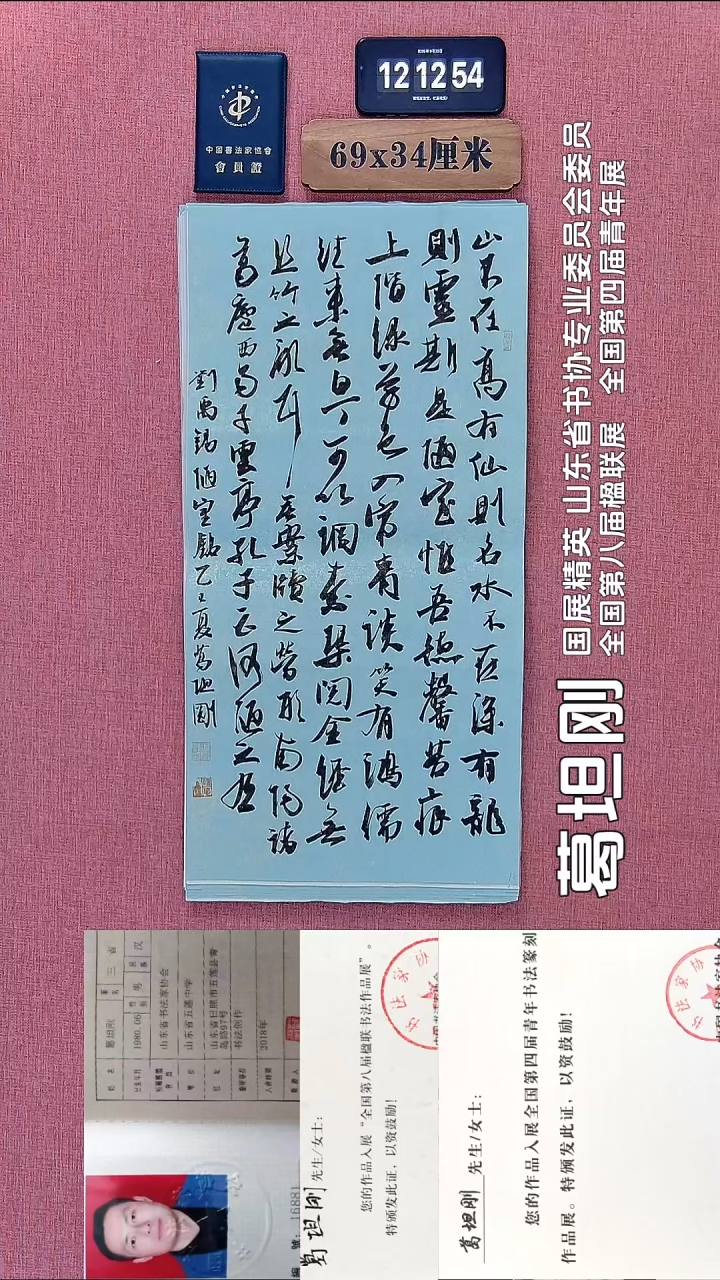 中国书法家协会
會員證
12 12 54
69x34厘米
山不在高有仙則名水不在深有龍
則靈斯是陋室惟吾德馨苔痕
上階綠草色入簾青談笑有鴻儒
往來無白丁可以調素琴閱金經無
絲竹之亂耳無案牘之勞形南陽諸
葛廬西蜀子雲亭孔子云何陋之有
劉禹錫陋室銘乙巳夏葛坦剛
葛坦刚
国展精英 山东省书协专业委员会委员
全国第八届楹联展 全国第四届青年展
姓名 葛坦刚
1980.06
性别 男
民族 汉
山东省书法家协会
山东省五莲中学
山东省日照市五莲县青
岛路97号
书法创作
2018年
編號：16881
葛坦刚 先生/女士：
您的作品入展“全国第八届楹联书法作品展”。
特颁发此证，以资鼓励！
葛坦刚 先生/女士：
您的作品入展全国第四届青年书法篆刻
作品展。特颁发此证，以资鼓励！